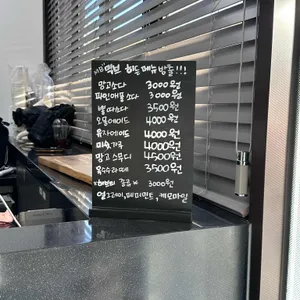 메뉴 방출!!!
망고소다 3000원
파인애플소다 3000원
3500원
4000원
유자에이드 4000원
미숫가루 4000원
망고스무디 4500원
옥수수라떼 3500원
3000원
얼그레이, 페퍼민트, 캐모마일